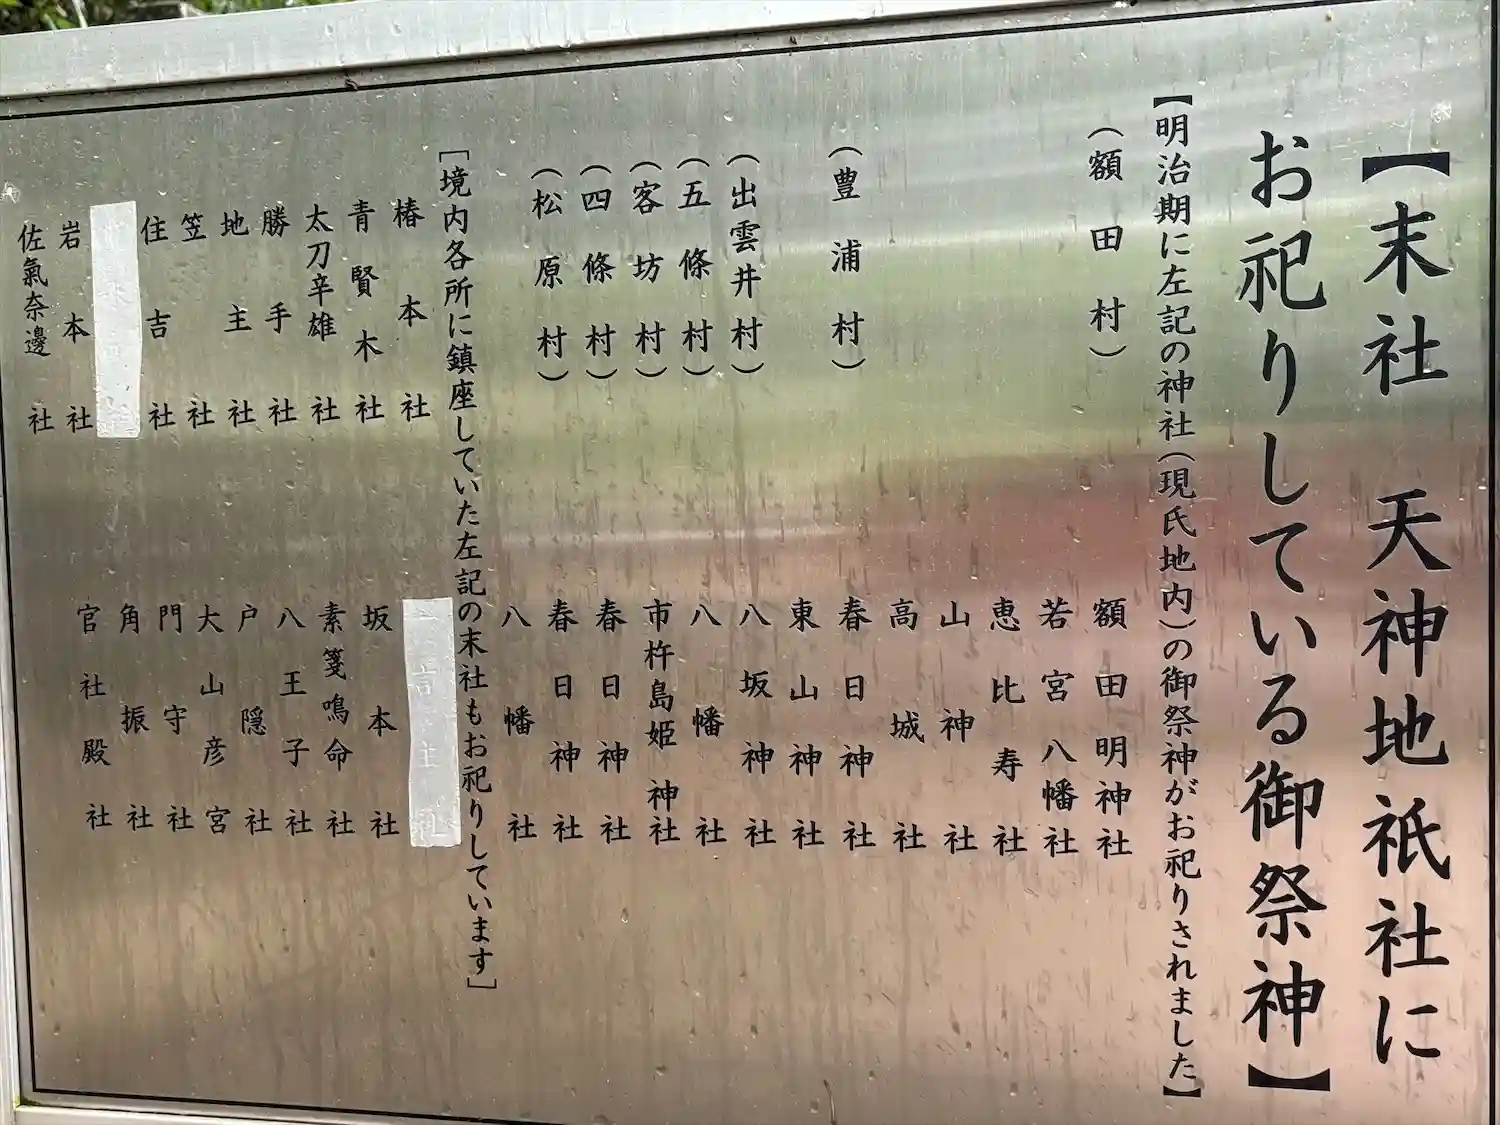 【末社 天神地祇社に
お祀りしている御祭神】
【明治期に左記の神社(現氏地内)の御祭神がお祀りされました】
(額田村) 額田明神社
若宮八幡社
恵比寿社
山神社
高城社
(豊浦村) 春日神社
東山神社
(出雲井村) 八坂神社
(五條村) 八幡社
(客坊村) 市杵島姫神社
(四條村) 春日神社
(松原村) 春日神社
八幡社
[境内各所に鎮座していた左記の末社もお祀りしています]
椿本社
青賢木社
太刀辛雄社
勝手社
地主社
笠社
住吉社
岩本社
佐氣奈邊社
言主社
坂本社
素箋鳴命社
八王子社
戸隠社
大山彦宮
門守社
角振社
官社殿社